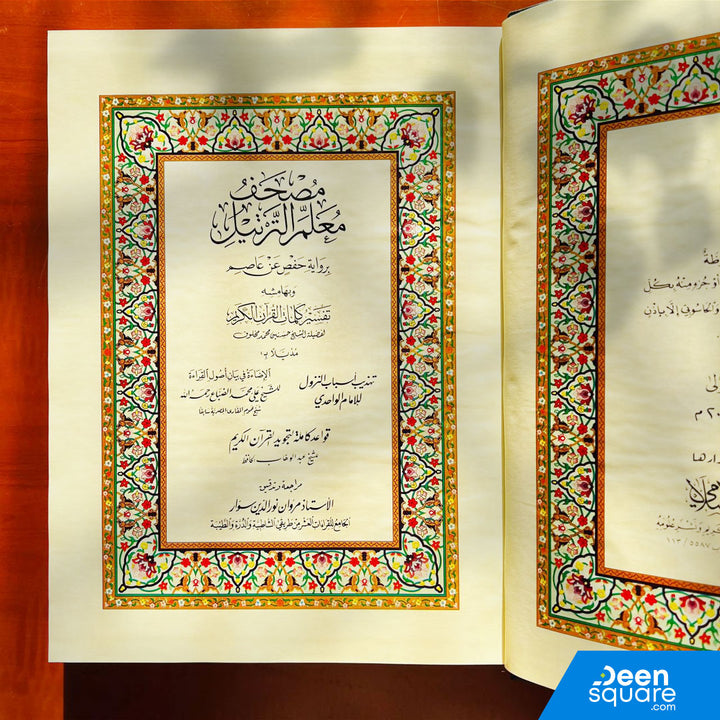 مُصْحَفُ
مُعَلِّمِ التَّرْتِيْلِ
بِرِوَايَةِ حَفْصٍ عَنْ عَاصِمٍ
وَبِهَامِشِهِ
تَفْسِيْرُ كَلِمَاتِ القُرْآنِ الكَرِيْمِ
لفضيلة الشيخ حسنين محمد مخلوف
مُذَيَّلًا بـ:
تهذيب أسباب النزول
للإمام الواحدي
الإضاءة في بيان أصول القراءة
للشيخ علي محمد الضباع رحمه الله
شيخ عموم المقارئ المصرية سابقًا
قواعد كاملة لتجويد القرآن الكريم
شيخ عبد الوهاب الحافظ
مراجعة وتدقيق
الأستاذ مروان نور الدين سوار
الجامع للقراءات العشر من طريقي الشاطبية والدرة والطيبة
أو جزء منه بكل
والحاسوبي إلا بإذن
م
٥٥٨٧ / ١١٣
Deen
square
.com